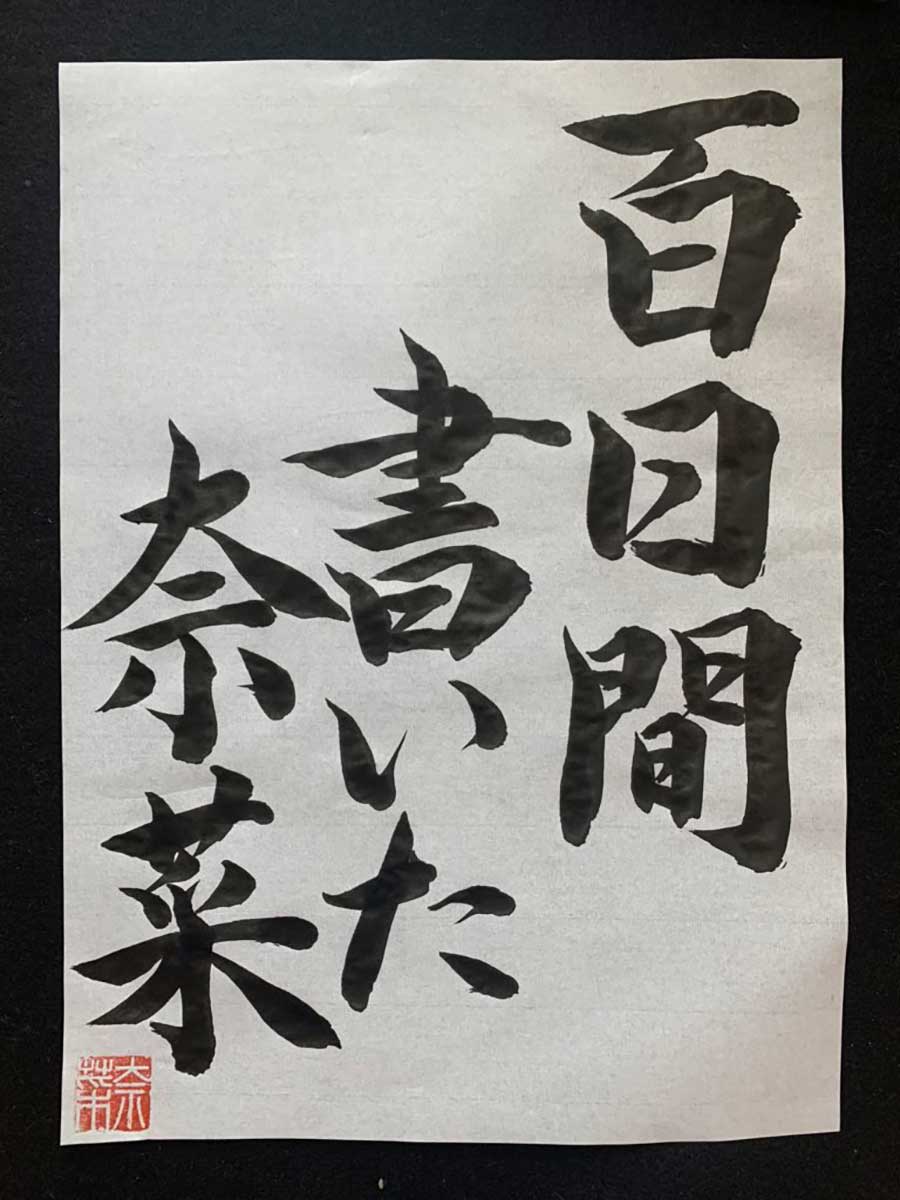 百日間
書いた
奈菜
奈菜